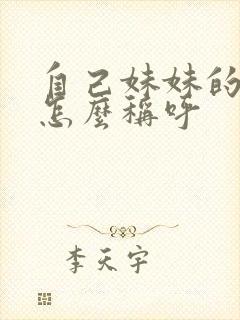 自己妹妹的
怎麼稱呼
李天宇